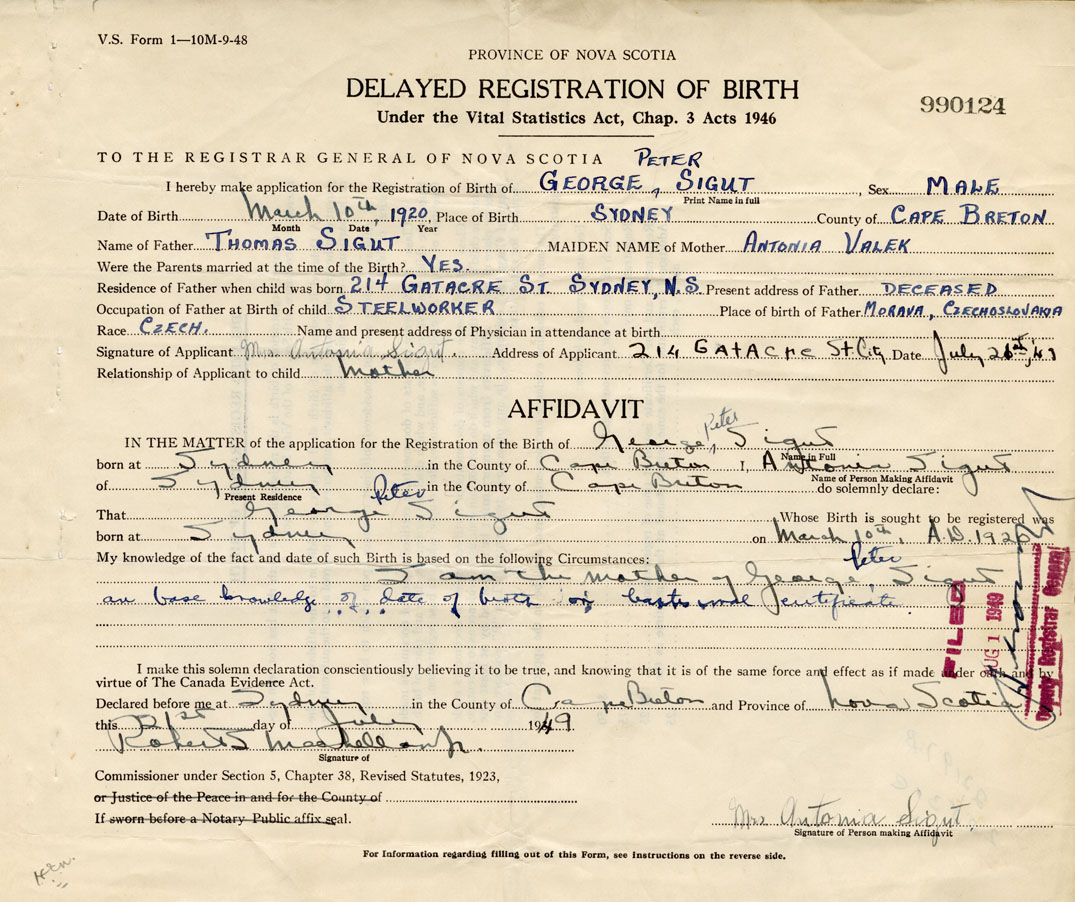 V.S. Form 1—10M-9-48
PROVINCE OF NOVA SCOTIA
DELAYED REGISTRATION OF BIRTH
990124
Under the Vital Statistics Act, Chap. 3 Acts 1946
TO THE REGISTRAR GENERAL OF NOVA SCOTIA PETER
I hereby make application for the Registration of Birth of GEORGE, SIGUT, Sex MALE
Print Name in full
Date of Birth March 10th, 1920, Place of Birth SYDNEY County of CAPE BRETON
Month Date Year
Name of Father THOMAS SIGUT MAIDEN NAME of Mother ANTONIA VALEK
Were the Parents married at the time of the Birth? YES.
Residence of Father when child was born 214 GATACRE ST. SYDNEY, N.S. Present address of Father DECEASED
Occupation of Father at Birth of child STEELWORKER Place of birth of Father MORAVA, CZECHOSLOVAKIA
Race CZECH. Name and present address of Physician in attendance at birth
Signature of Applicant Mrs Antonia Sigut. Address of Applicant 214 GATACRE St. City Date July
Relationship of Applicant to child Mother
AFFIDAVIT
Peter
IN THE MATTER of the application for the Registration of the Birth of George, Sigut
Name in Full
born at Sydney in the County of Cape Breton I, Antonia Sigut
Name of Person Making Affidavit
of Sydney in the County of Cape Breton do solemnly declare:
Present Residence
Peter
That George Sigut Whose Birth is sought to be registered was
born at Sydney on March 10th, A.D. 1920
My knowledge of the fact and date of such Birth is based on the following Circumstances:
Peter
I am the mother of George, Sigut
an base knowledge of date of birth on baptismal certificate.
I make this solemn declaration conscientiously believing it to be true, and knowing that it is of the same force and effect as if made under oath and by
virtue of The Canada Evidence Act.
FILED
AUG 1 1949
Deputy Registrar General
Declared before me at Sydney in the County of Cape Breton and Province of Nova Scotia
this 21st day of July 1949
Robert S.
Signature of
Commissioner under Section 5, Chapter 38, Revised Statutes, 1923,
or Justice of the Peace in and for the County of
If sworn before a Notary Public affix seal.
Mrs Antonia Sigut.
Signature of Person making Affidavit
For Information regarding filling out of this Form, see instructions on the reverse side.